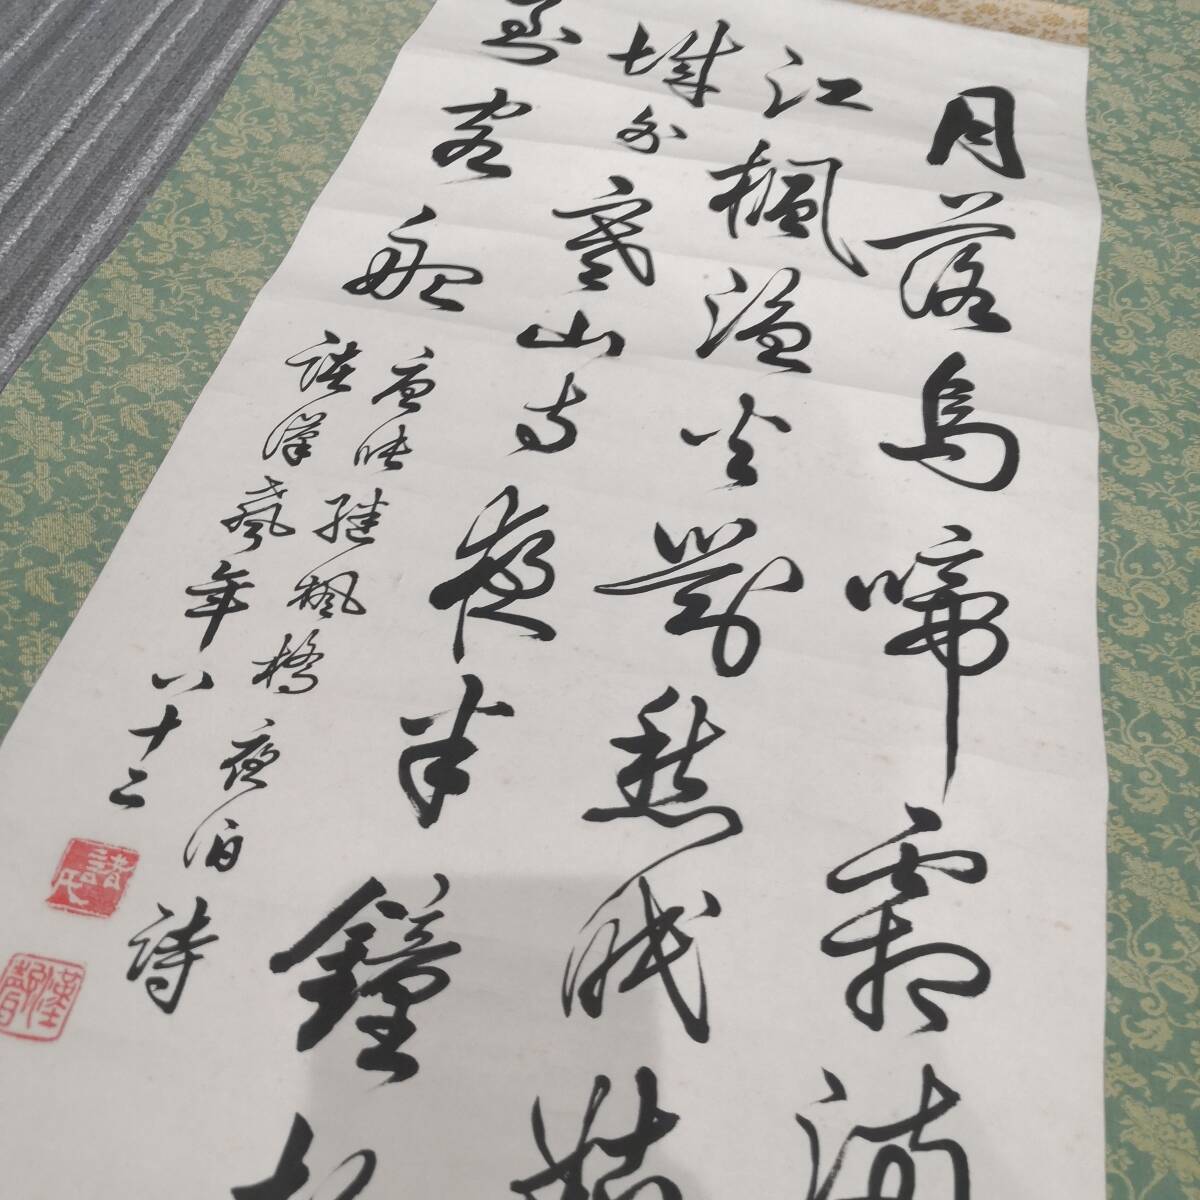 月落烏啼霜滿
江楓漁火對愁眠姑
城外寒山寺夜半鐘
到客船
唐張繼楓橋夜泊詩
諸漢馨年八十二
諸氏
漢馨